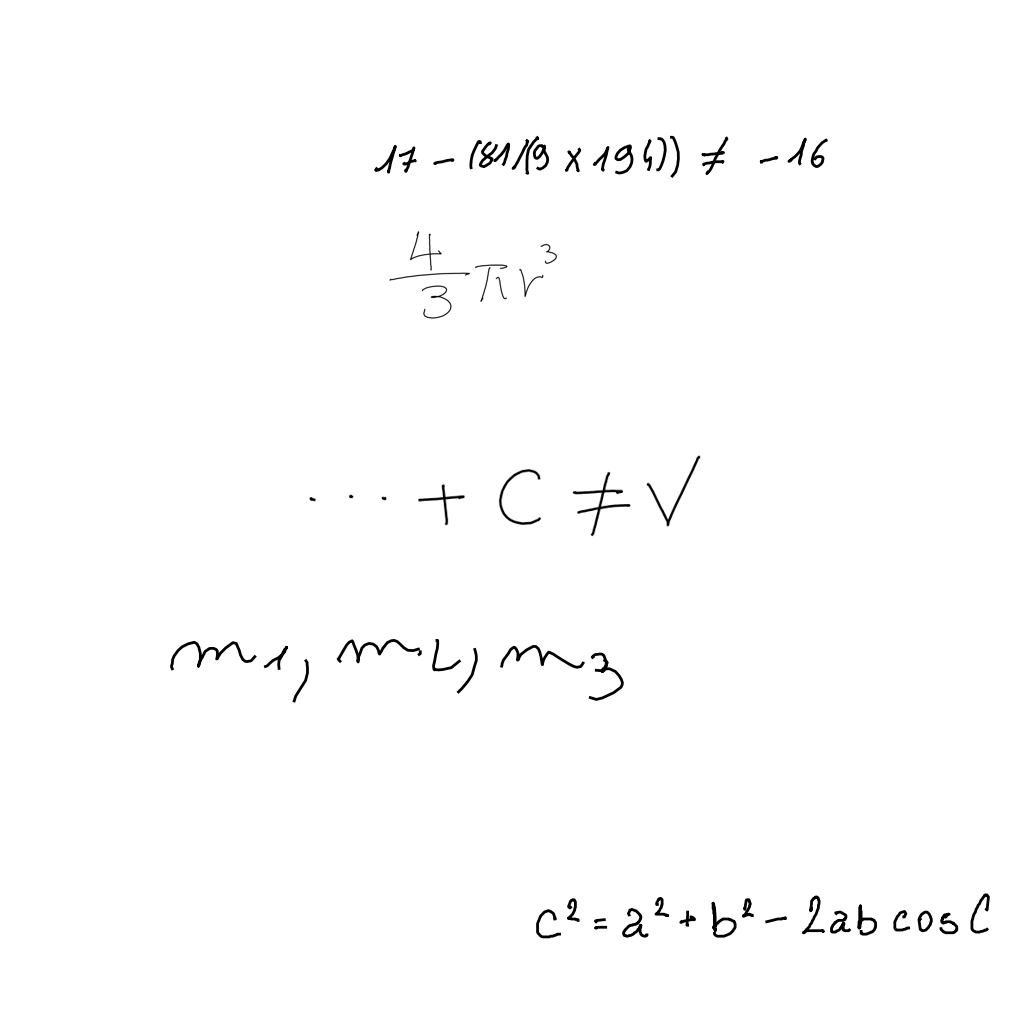 17 - (81/(9 × 194)) ≠ -16
4/3 πr³
... + C ≠ V
m₁, m₂, m₃
c² = a² + b² - 2ab cos C